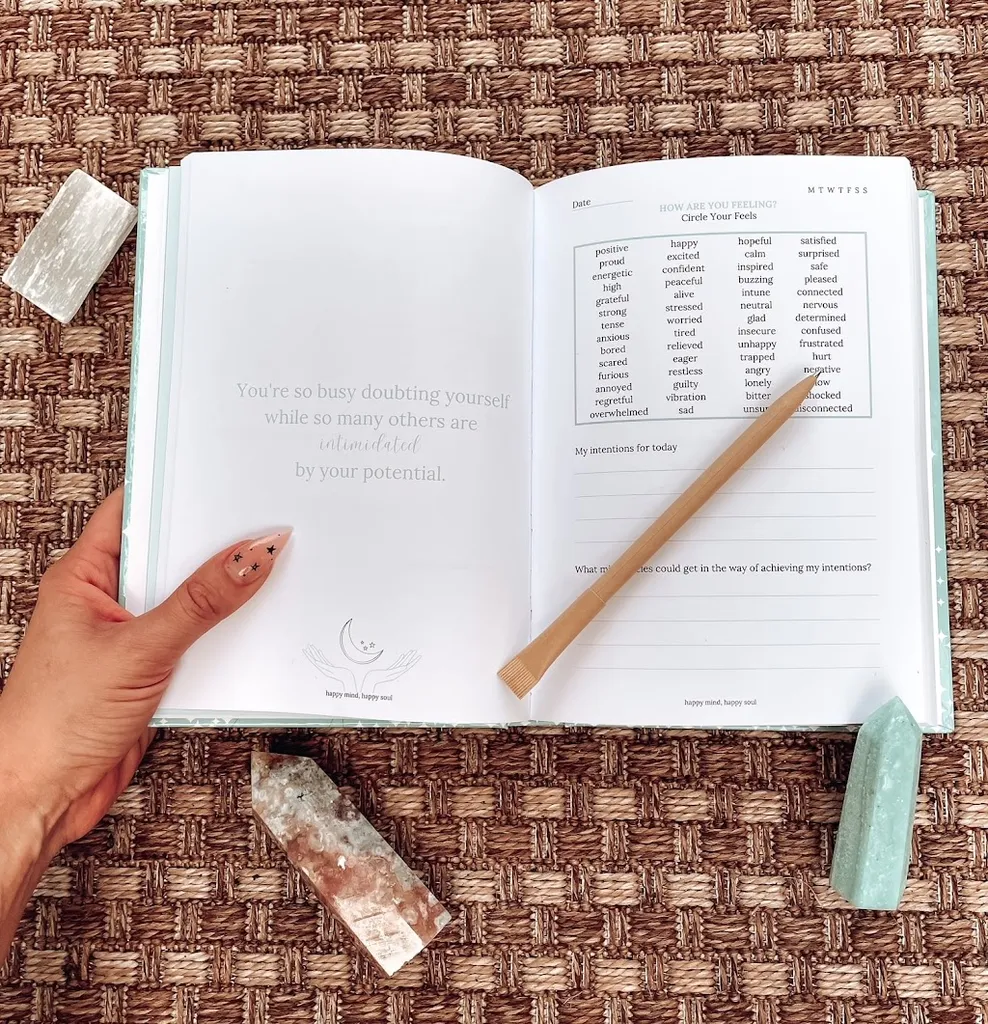 You're so busy doubting yourself
while so many others are
intimidated
by your potential.
happy mind, happy soul
M T W T F S S
Date
HOW ARE YOU FEELING?
Circle Your Feels
positive happy hopeful satisfied
proud excited calm surprised
energetic confident inspired safe
high peaceful buzzing pleased
grateful alive intune connected
strong stressed neutral nervous
tense worried glad determined
anxious tired insecure confused
bored relieved unhappy frustrated
scared eager trapped hurt
furious restless angry negative
annoyed guilty lonely
regretful vibration bitter
overwhelmed sad
My intentions for today
What could get in the way of achieving my intentions?
happy mind, happy soul